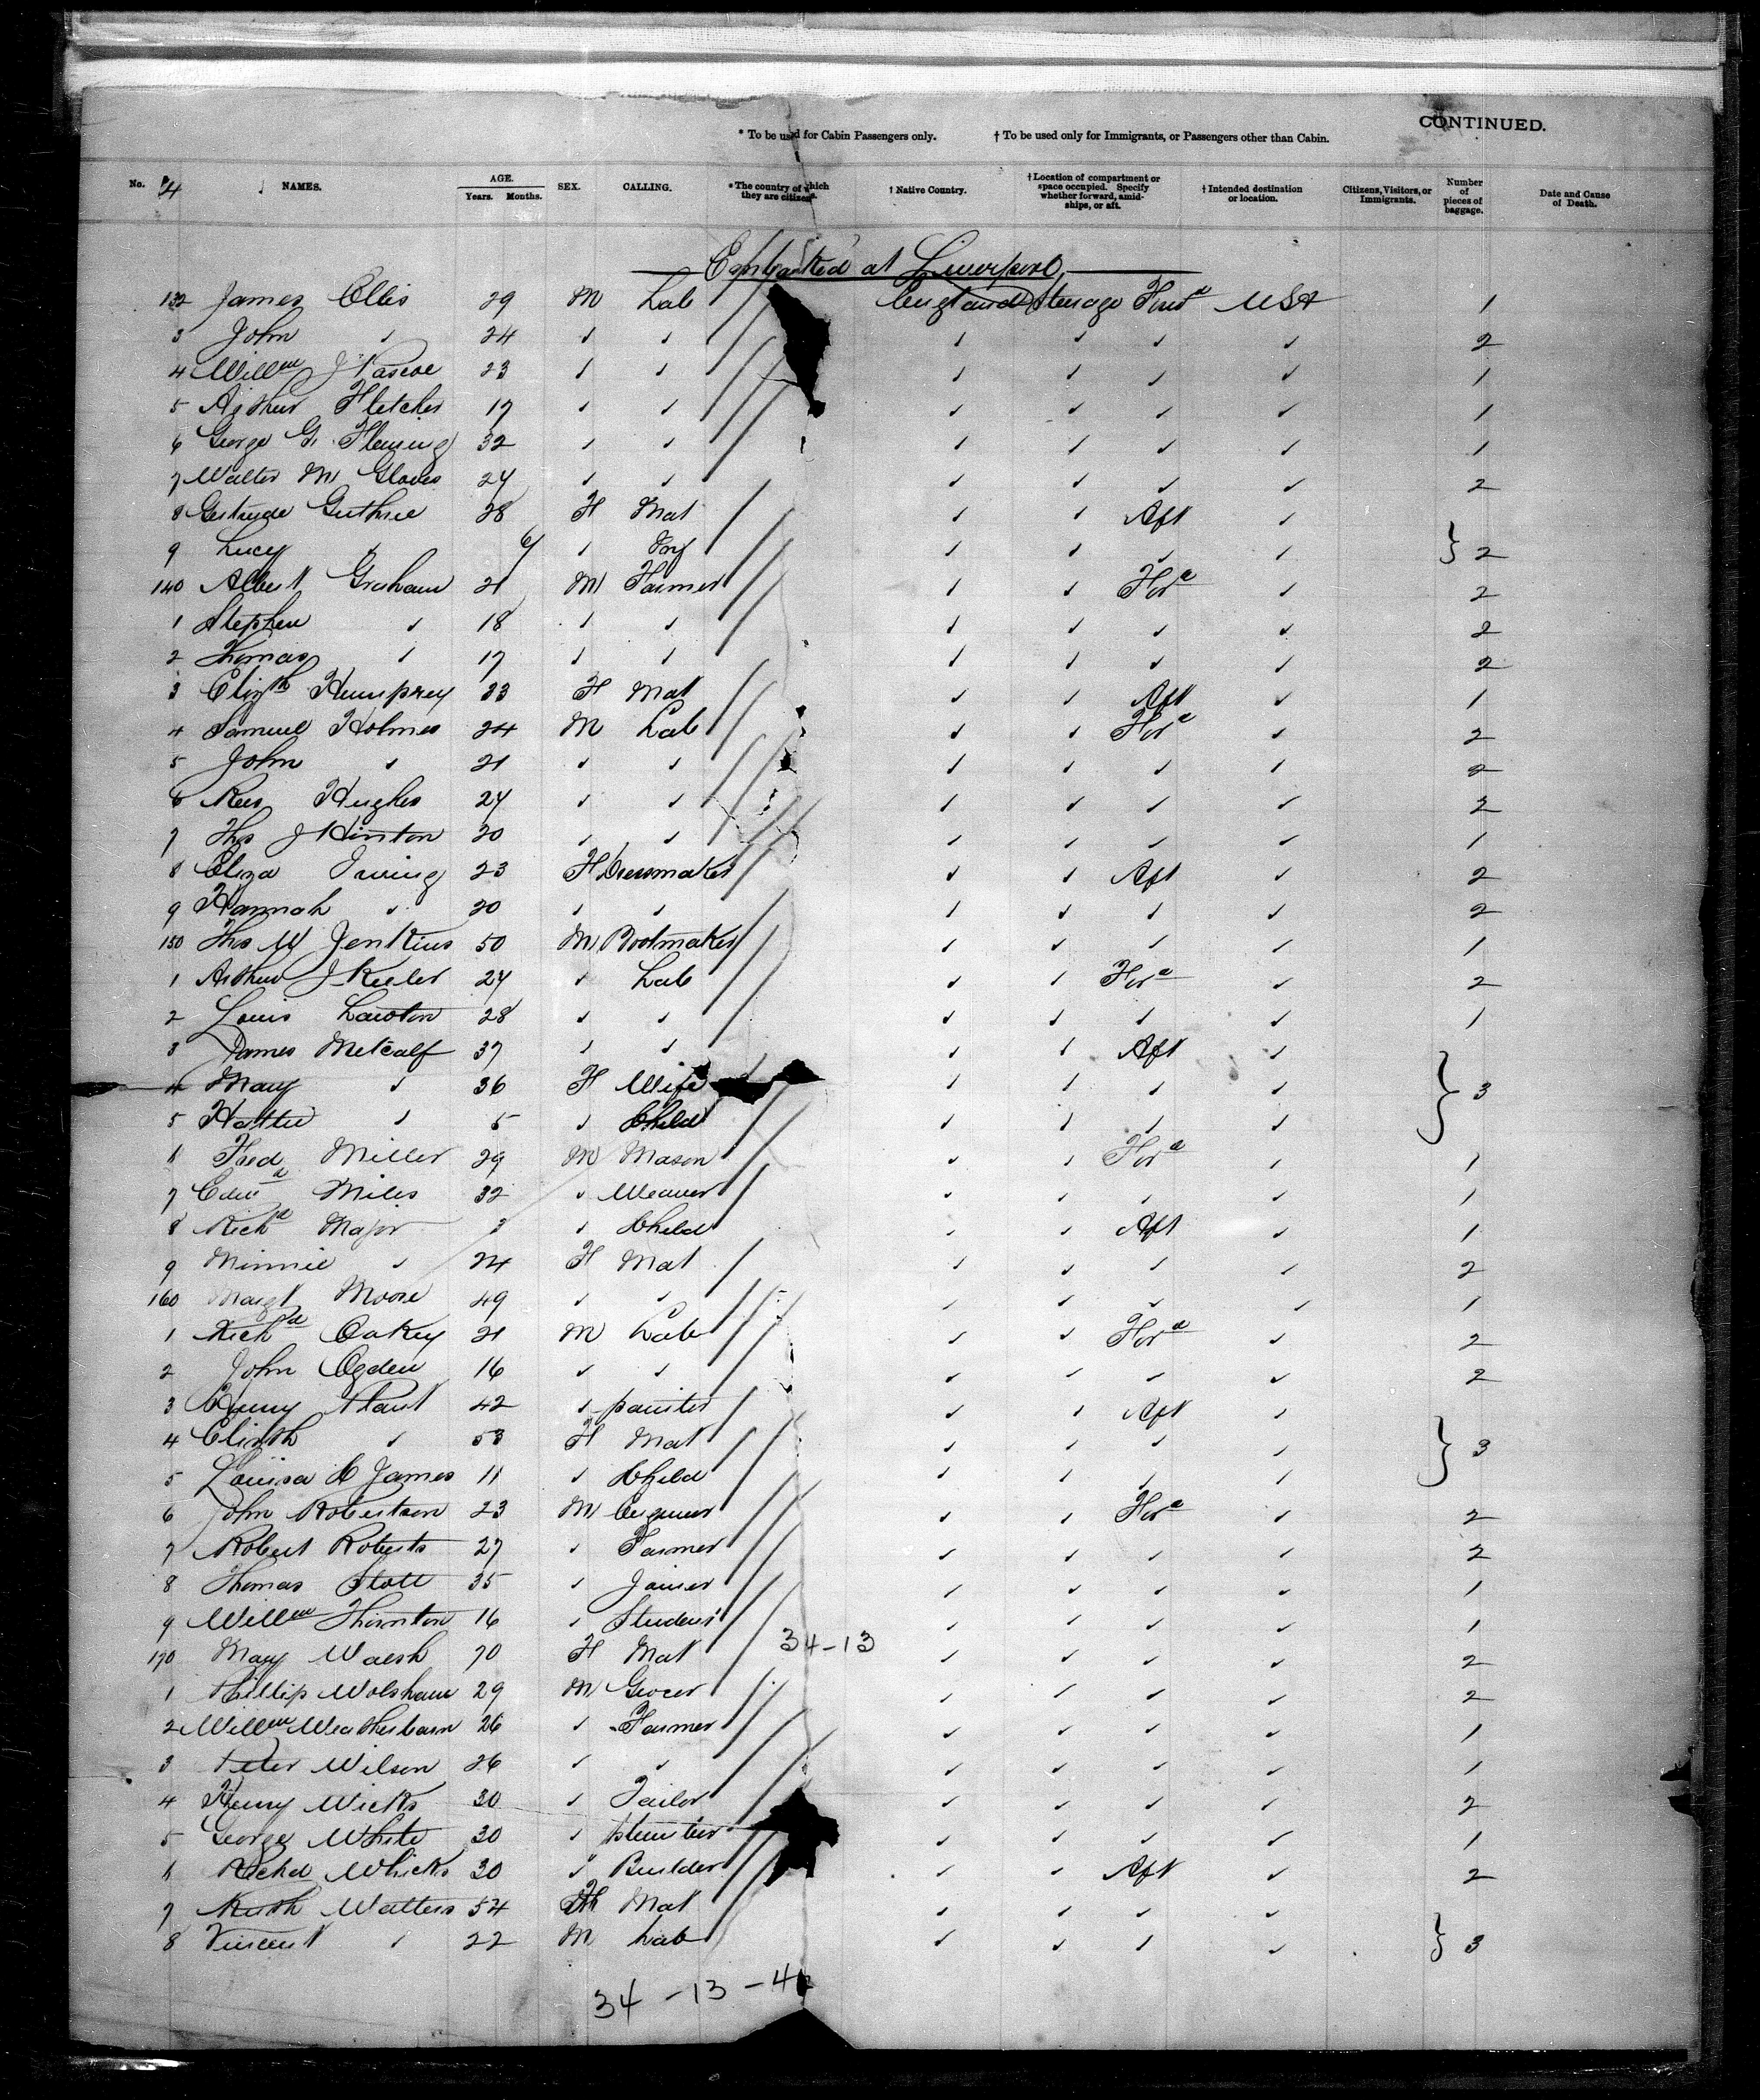 CONTINUED.
* To be used for Cabin Passengers only. † To be used only for Immigrants, or Passengers other than Cabin.
No. NAMES. AGE. Years. Months. SEX. CALLING. * The country of which they are citizens. † Native Country. † Location of compartment or space occupied. Specify whether forward, amidships, or aft. † Intended destination or location. Citizens, Visitors, or Immigrants. Number of pieces of baggage. Date and Cause of Death.
Embarked at Liverpool
132 James Ellis 29 M Lab England Steerage Forwd USA 1
3 John ✓ 24 ✓ ✓ ✓ ✓ ✓ ✓ 2
4 Willm J Pascoe 23 ✓ ✓ ✓ ✓ ✓ ✓ 1
5 Arthur Fletcher 17 ✓ ✓ ✓ ✓ ✓ ✓ 1
6 George G. Fleming 32 ✓ ✓ ✓ ✓ ✓ ✓ 1
7 Walter M Glaves 24 ✓ ✓ ✓ ✓ ✓ ✓ 2
8 Gertrude Guthrie 28 F Mat ✓ ✓ Aft ✓
9 Lucy ✓ 6/ ✓ Inf ✓ ✓ ✓ ✓ } 2
140 Albert Graham 21 M Farmer ✓ ✓ Ford ✓ 2
1 Stephen ✓ 18 ✓ ✓ ✓ ✓ ✓ ✓ 2
2 Thomas ✓ 17 ✓ ✓ ✓ ✓ ✓ ✓ 2
3 Elizth Humprey 33 F Mat ✓ ✓ Aft ✓ 1
4 Samuel Holmes 24 M Lab ✓ ✓ Ford ✓ 2
5 John ✓ 21 ✓ ✓ ✓ ✓ ✓ ✓ 2
6 Rees Hughes 24 ✓ ✓ ✓ ✓ ✓ ✓ 2
7 Thos J Hinton 20 ✓ ✓ ✓ ✓ ✓ ✓ 1
8 Eliza Irving 23 F Dressmaker ✓ ✓ Aft ✓ 2
9 Hannah ✓ 20 ✓ ✓ ✓ ✓ ✓ ✓ 2
150 Thos W Jenkins 50 M Bootmaker ✓ ✓ ✓ ✓ 1
1 Arthur J Keeler 24 ✓ Lab ✓ ✓ Ford ✓ 2
2 Louis Lawton 28 ✓ ✓ ✓ ✓ ✓ ✓ 1
3 James Metcalf 37 ✓ ✓ ✓ ✓ Aft ✓
4 Mary ✓ 36 F Wife ✓ ✓ ✓ ✓ } 3
5 Hattie ✓ 5 ✓ Child ✓ ✓ ✓ ✓
6 Fred Miller 29 M Mason ✓ ✓ Ford ✓ 1
7 Edwd Miles 32 ✓ Weaver ✓ ✓ ✓ ✓ 1
8 Richd Major 3 ✓ Child ✓ ✓ Aft ✓ 1
9 Minnie ✓ 24 F Mat ✓ ✓ ✓ ✓ 2
160 Margt Moore 49 ✓ ✓ ✓ ✓ ✓ ✓ 1
1 Richd Oakey 21 M Lab ✓ ✓ Ford ✓ 2
2 John Ogden 16 ✓ ✓ ✓ ✓ ✓ ✓ 2
3 Henry Plant 42 ✓ painter ✓ ✓ Aft ✓
4 Elizth ✓ 53 F Mat ✓ ✓ ✓ ✓ } 3
5 Louisa James 11 ✓ Child ✓ ✓ ✓ ✓
6 John Robertson 23 M Engineer ✓ ✓ Ford ✓ 2
7 Robert Roberts 27 ✓ Farmer ✓ ✓ ✓ ✓ 2
8 Thomas Stott 35 ✓ Joiner ✓ ✓ ✓ ✓ 1
9 Willm Thornton 16 ✓ Student ✓ ✓ ✓ ✓ 1
34-13
170 Mary Walsh 70 F Mat ✓ ✓ ✓ ✓ 2
1 Phillip Wolsham 29 M Grocer ✓ ✓ ✓ ✓ 2
2 Willm Weatherbarn 26 ✓ Farmer ✓ ✓ ✓ ✓ 1
3 Peter Wilson 26 ✓ ✓ ✓ ✓ ✓ ✓ 1
4 Henry Wicks 30 ✓ Tailor ✓ ✓ ✓ ✓ 2
5 George White 30 ✓ plumber ✓ ✓ ✓ ✓ 1
6 Richd Whicks 30 ✓ Builder ✓ ✓ Aft ✓ 2
7 Ruth Watters 54 F Mat ✓ ✓ ✓ ✓
8 Vincent ✓ 22 M Lab ✓ ✓ ✓ ✓ } 3
34-13-4